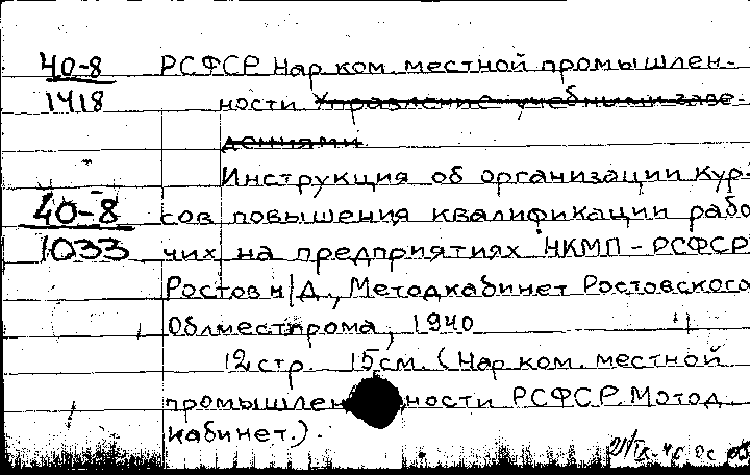 40-8 РСФСР Нар ком. местной промышлен-
1418 ности Управление учебными заве-
дениями.
Инструкция об организации кур-
40-8 сов повышения квалификации рабо
1033 чих на предприятиях НКМП-РСФСР
Ростов н/Д., Методкабинет Ростовского
Облместпрома, 1940
12 стр. 15 см. (Нар ком. местной
промышленности РСФСР. Мотод
кабинет.).